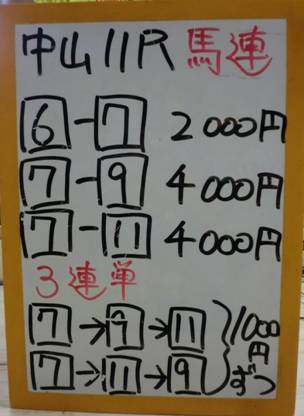 中山11R 馬連
6-7 2000円
7-9 4000円
7-11 4000円
3連単
7→9→11
7→11→9
1000円ずつ